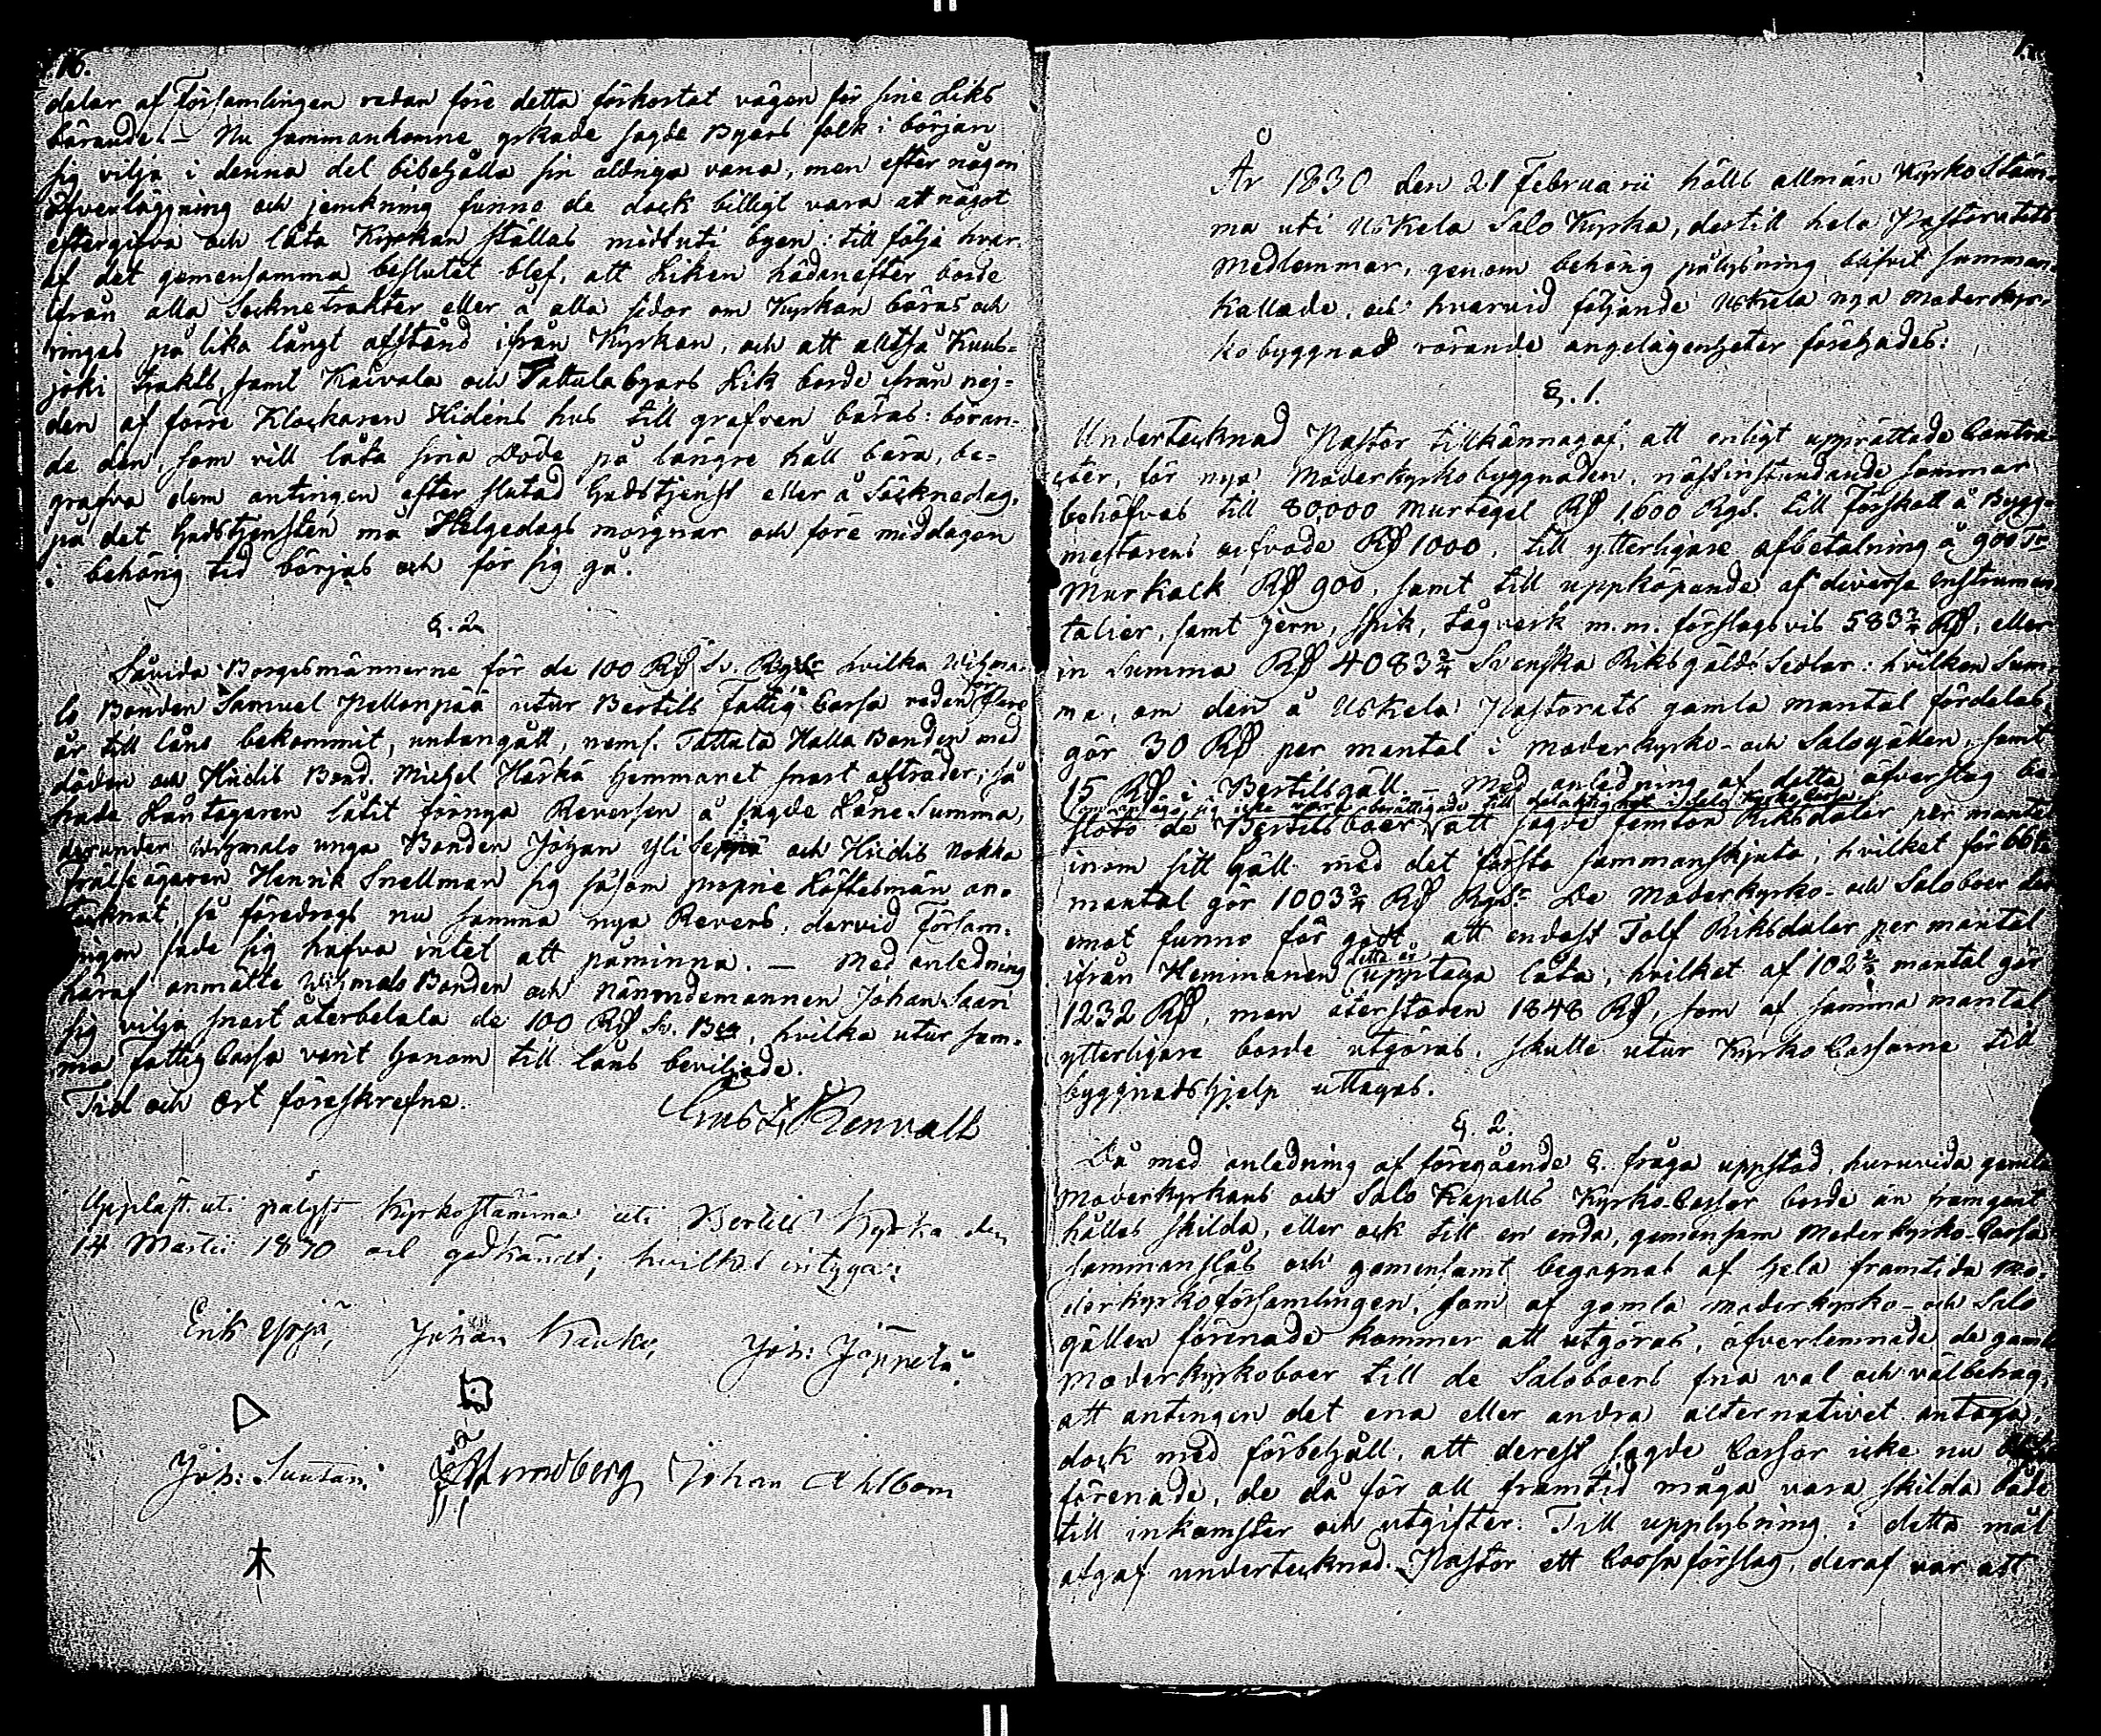 16.
delar af Församlingen redan före detta förkortat vägen för sine Liks
bärande. – Nu sammankomne yrkade sagde Byars folk i början
sig vilja i denna del bibehålla sin åldriga vana, men efter någon
öfverläggning och jemkning funno de dock billigt vara att något
eftergifva och låta Kyrkan ställas midt uti byen: till följe hvar-
af det gemensamma beslutet blef, att Liken hädanefter borde
ifrån alla Sockne trakter eller å alla sidor om Kyrkan bäras och
ringas på lika långt afstånd ifrån Kyrkan, och att alltså Kuus-
joki trakts, samt Kaivola och Tattula byars Lik borde ifrån nej-
den af förre Klockaren Hidéns hus till grafven bäras: böran-
de den, som vill låta sina Döde på längre håll bära, be-
grafva dem antingen efter slutad Gudstjenst eller å Söcknedag,
på det Gudstjensten må Helgedags morgnar och före middagen
i behörig tid börjas och för sig gå.
§. 2
Såvida Borgesmännerne för de 100 Rd Sv. Rgdr hvilka Wihma-
lo Bonden Samuel Pellonpää utur Bertils Fattig Cassa redan för flere
år till låns bekommit, undangått, neml. Tattula Halla Bonden med
döden och Hiidis Bond. Michel Härkä Hemmanet snart afträder; så
hade Låntagaren låtit förnya Reversen å sagde Låne Summa,
derunder Wihmalo unga Bonden Johan Yli Seppä och Hiidis Nokka
Frälseägaren Henrik Snellman sig såsom proprie Löftesmän an-
tecknat, så föredrogs nu samma nya Revers, dervid Försam-
lingen sade sig hafva intet att påminna. — Med anledning
häraf anmälte Wihmalo Bonden och Nämndemannen Johan Saari
sig vilja snart återbetala de 100 Rd Sv. Bco, hvilka utur sam-
ma Fattig Cassa varit honom till låns beviljade.
Tid och Ort föreskrefne.
Gust. Renvall
Uppläst uti pålyst Kyrkostämma uti Bertils Kyrka den
14 Martii 1830 och godkändt; hvilket intyga:
Erik Johan Joh: Jäppelä
Joh: Suutari Strandberg Johan Ahlbom
År 1830 den 21 Februarii hölls allmän Kyrkostäm-
ma uti Uskela Salo Kyrka, dertill hela Pastoratets
Medlemmar, genom behörig pålysning blifvit samman-
kallade, och hvarvid följande Uskela nya Moderkyr-
kobyggnad rörande angelägenheter förehades:
§. 1.
Undertecknad Pastor tillkännagaf, att enligt upprättade Contra-
cter, för nya Moderkyrkobyggnaden, nästinstundande sommar
behöfves till 80,000 Murtegel Rd 1,600 Rgs. till Förskott å Bygg-
mestarens arfvode Rd 1000, till ytterligare afbetalning å 900 Tr
Murkalk Rd 900, samt till uppköpande af diverse Instrumen-
talier, samt jern, spik, tågverk m.m. förslagsvis 583 3/4 Rd, eller
in Summa Rd 4083 3/4 Svenska Riksgälds Sedlar: hvilken Sum-
ma, om den å Uskela Pastorats gamla mantal fördelas,
gör 30 Rd per mantal i Moderkyrko- och Salogällen, samt
15 Rd i Bertilsgäll. – Med anledning af detta öfverslag be-
slöto de Bertilsboer, att sagde femton Riksdaler per mantal
inom sitt gäll med det första sammanskjuta, hvilket för
mantal gör 1003 3/4 Rd Rgs. De Moderkyrko- och Saloboer der-
emot funno för godt att endast Tolf Riksdaler per mantal
ifrån Hemmanen upptaga låta, hvilket af 102 2/3 mantal gör
1232 Rd, men återstoden 1848 Rd, som af samma mantal
ytterligare borde utgöras, skulle utur Kyrko Cassorne till
byggnadshjelp uttagas.
§. 2.
Då med anledning af föregående §. fråga uppstod, huruvida gamla
Moderkyrkans och Salo Kapells Kyrko Cassor borde än framgent
hållas skilda, eller ock till en enda, gemensam Moderkyrko-Cassa
sammanslås och gemensamt begagnas af hela framtida Mo-
derkyrkoförsamlingen, som af gamla moderkyrko- och Salo
gällen förenade kommer att utgöras, öfverlemnade de gamle
Moderkyrkoboer till de Saloboers fria val och välbehag,
att antingen det ena eller andra alternativet antaga,
dock med förbehåll, att derest sagde Cassor icke nu
förenade, de då för all framtid måga vara skilda både
till inkomster och utgifter. Till upplysning i detta mål
afgaf undertecknad Pastor ett Cassaförslag, deraf var att